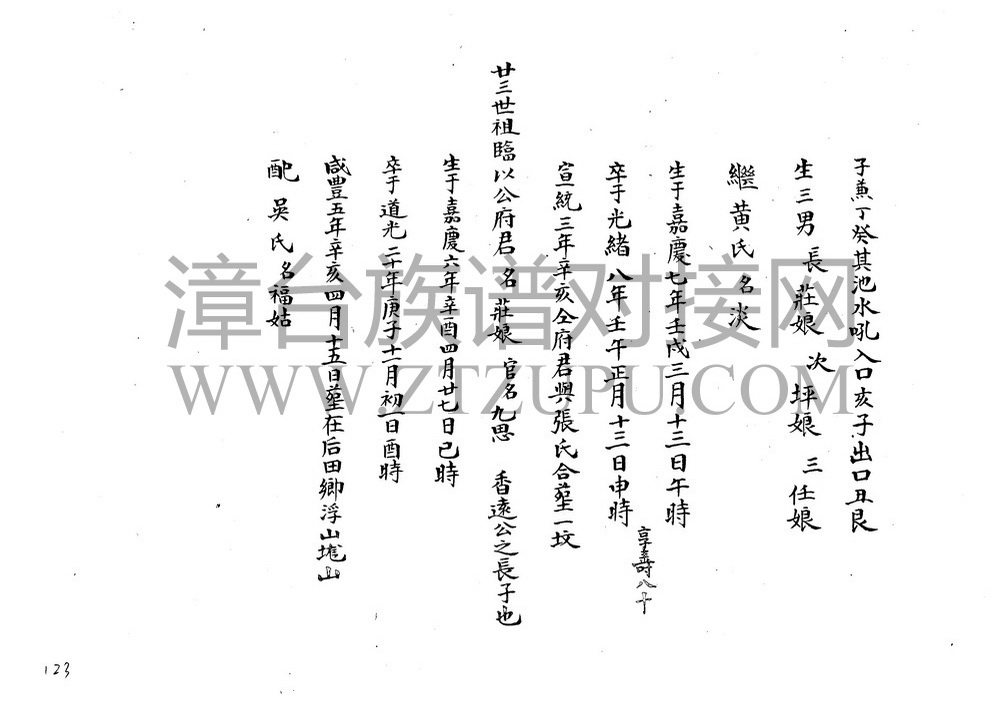 子兼丁癸其池水吼入口亥子出口丑艮
生三男 長莊娘 次坪娘 三任娘
繼黃氏名淡
生于嘉慶七年壬戌三月十三日午時
卒于光緒八年壬午正月十三日申時 享壽八十
宣統三年辛亥仝府君與張氏合塟一坟
廿三世祖臨以公府君 名莊娘 官名九思 香遠公之長子也
生于嘉慶六年辛酉四月廿七日巳時
卒于道光二十年庚子十一月初一日酉時
咸豐五年辛亥四月十五日塟在后田鄉浮山墘山
配吳氏名福姑
漳台族谱对接网
WWW.ZTZUPU.COM
123